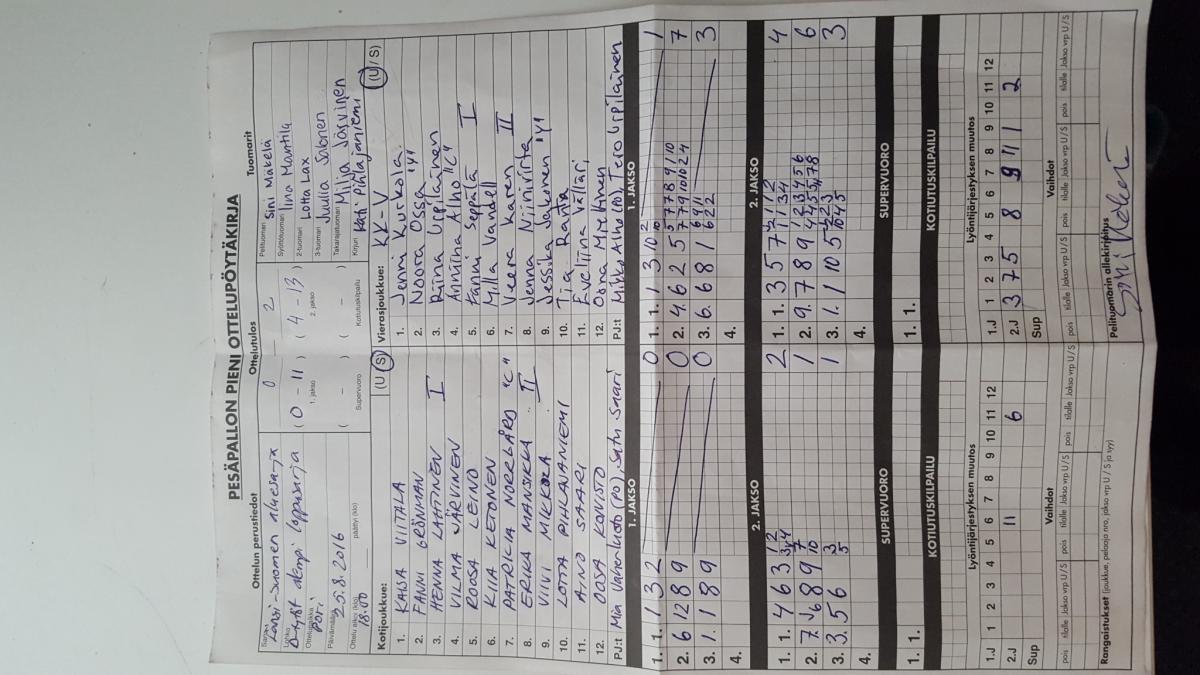 PESÄPALLON PIENI OTTELUPÖYTÄKIRJA
Ottelun perustiedot
Ottelutulos
Tuomarit
Sarja
Länsi-Suomen aluesarja
Lohko
D-tytöt alempi loppusarja
Ottelupaikka
Pori
Päivämäärä
25.8.2016
Ottelu alkoi (klo)
18.00
päättyi (klo)
0 - 2
( 0 - 11 ) ( 4 - 13 )
1. jakso
2. jakso
( - ) ( - )
Supervuoro
Kotiutuskilpailu
Pelituomari
Sini Mäkelä
Syöttötuomari
Iina Mantila
2-tuomari
Lotta Lax
3-tuomari
Juulia Salonen
Takarajatuomari
Milja Järvinen
Kirjuri
Kati Pihlajaniemi
Kotijoukkue:
(U / S)
1. KAISA VIITALA
2. FANNI GRÖNMAN
3. HENNA LAHTINEN I
4. VILMA JÄRVINEN
5. ROOSA LEINO
6. KIIA KETONEN
7. PATRICIA NORRGÅRD "C"
8. ERIKA MANSIKKA
9. VIIVI MIKKOLA II
10. LOTTA PIHLAJANIEMI
11. AINO SAARI
12. OOSA KOIVISTO
PJ:t Mia Vähä-Luoto (PO), Satu Saari
Vierasjoukkue: KK-V
(U / S)
1. Jenni Kurkola
2. Noora Ossa "Y"
3. Riina Urpilainen
4. Anniina Alho "C"
5. Fanni Seppälä I
6. Milla Vandell
7. Veera Kanen II
8. Jenna Niinivirta
9. Jessika Jakonen "Y"
10. Tia Ranta
11. Eveliina Välläri
12. Oona Miettinen
PJ:t Mikko Alho (PO), Tero Urpilainen
1. JAKSO
1. 1. 1 3 2 0
2. 6 12 8 9 0
3. 1. 1 8 9 0
4.
1. JAKSO
1. 1. 1 3 10 2 1
2. 4. 6 2 5 7
3. 6. 6 8 1 3
4.
2. JAKSO
1. 1. 4 6 3 2
2. 7. 6 8 9 1
3. 3. 5 6 1
4.
2. JAKSO
1. 1. 3 5 7 4
2. 9. 7 8 9 6
3. 1. 1 10 5 3
4.
SUPERVUORO
1. 1.
SUPERVUORO
1. 1.
KOTIUTUSKILPAILU
KOTIUTUSKILPAILU
Lyöntijärjestyksen muutos
1.J 1 2 3 4 5 6 7 8 9 10 11 12
2.J 11 6
Sup
Vaihdot
pois tilalle Jakso vrp U / S pois tilalle Jakso vrp U / S pois tilalle Jakso vrp U / S
Rangaistukset (joukkue, pelaaja nro, jakso vrp U / S ja syy)
Lyöntijärjestyksen muutos
1.J 1 2 3 4 5 6 7 8 9 10 11 12
2.J 3 7 5 8 9 11 1 2
Sup
Vaihdot
pois tilalle Jakso vrp U / S pois tilalle Jakso vrp U / S pois tilalle Jakso vrp U / S
Pelituomarin allekirjoitus